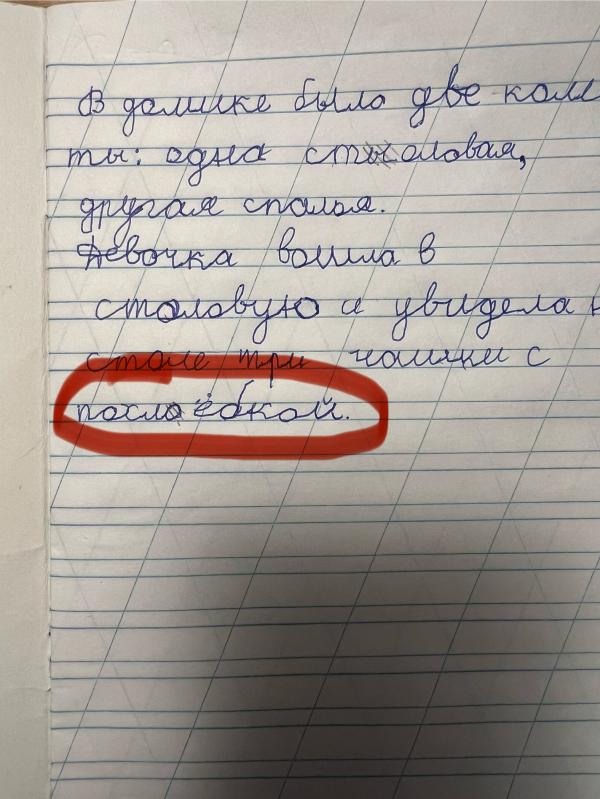 В домике было две ком
ты: одна столовая,
другая спалья.
Девочка вошла в
столовую и увидела н
столе три чашки с
послаёбкой.